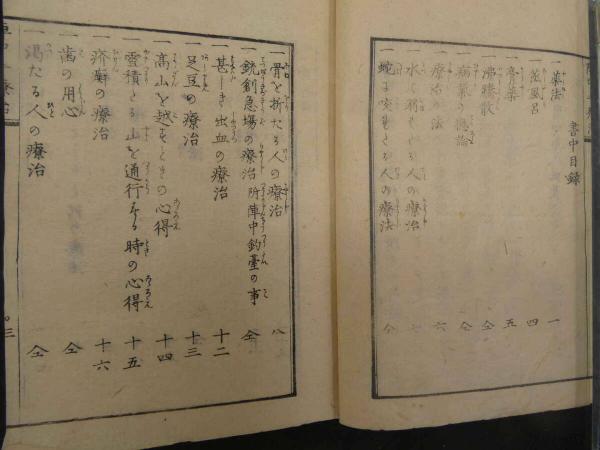 書中目録
一 薬法 一
一 蒸風呂 四
一 膏薬 五
一 沸騰散 仝
一 病氣の概論 仝
一 療治の法 六
一 水に溺もたる人の療治 七
一 蛇に咬もたる人の療法 仝
一 骨を折たる人の療治 八
一 銃創急場の療治 附陣中釣臺の事 仝
一 甚しき出血の療治 十二
一 足豆の療治 十三
一 高山を越すときの心得 十四
一 雪積たる山を通行する時の心得 十五
一 疥癬の療治 十六
一 歯の用心 仝
一 渇たる人の療治 仝